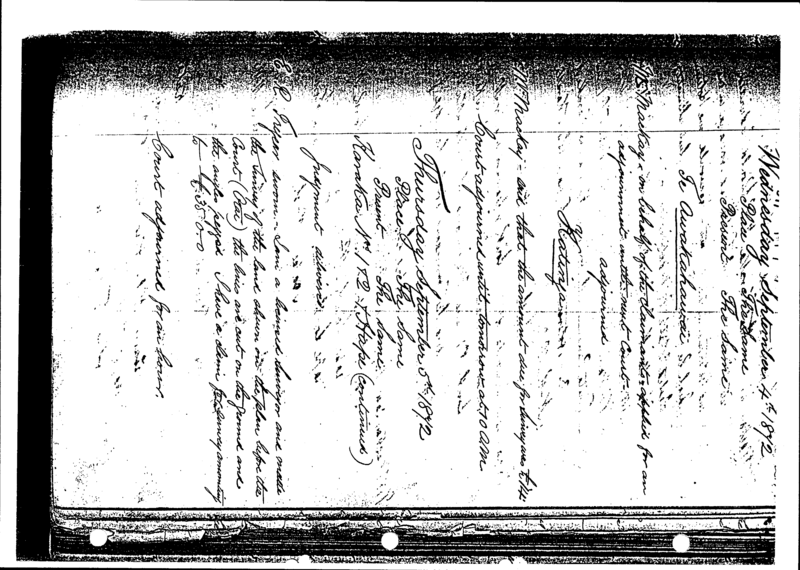 Wednesday September 4th 1872
Place The Same
Present The Same
Te Awakahawai
Mr Mackay on behalf of the claimants applied for an
adjournment until next Court
adjourned
Mr Mackay said that the amount due for was
Court adjourned until tomorrow at 10 AM
Thursday September 5th 1872
Place The Same
Present The Same
Karaka Nos 1 & 2 & Hape (continued)
Judgment
sworn. I am a licensed Surveyor and made
the survey of the land shown in the plan before the
Court the lines are cut on the ground and
the I have a claim for survey
to £35-0-0
Court adjourned for an hour.